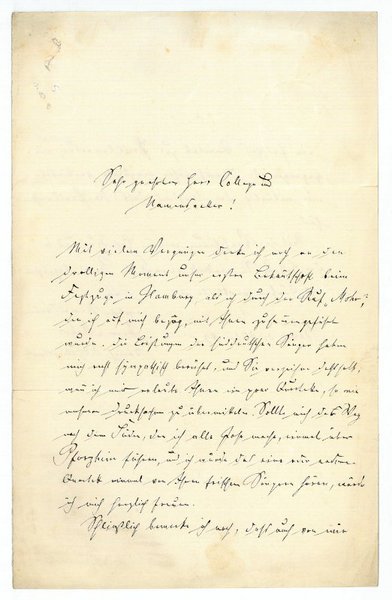 Sehr geehrter Herr College und
Namensvetter!
Mit vielem Vergnügen denke ich noch an den
drolligen Moment unsrer ersten Bekanntschaft beim
Festzuge in Hamburg, als ich durch den Ruf „Mohr",
den ich auf mich bezog, mit Ihnen zusammengeführt
wurde. Die Leistungen der süddeutschen Sänger haben
mich recht sympathisch berührt, und Sie verzeihen deshalb,
wenn ich mir erlaube Ihnen ein paar Quartette, so wie
mehrere Drucksachen zu übermitteln. Sollte mich des Weg
nach dem Süden, den ich alle Jahre mache, einmal über
Pforzheim führen, und ich würde das eine oder andere
Quartett einmal von Ihren frischen Sängern hören, würde
ich mich herzlich freuen.
Schließlich bemerke ich noch, daß auch von mir